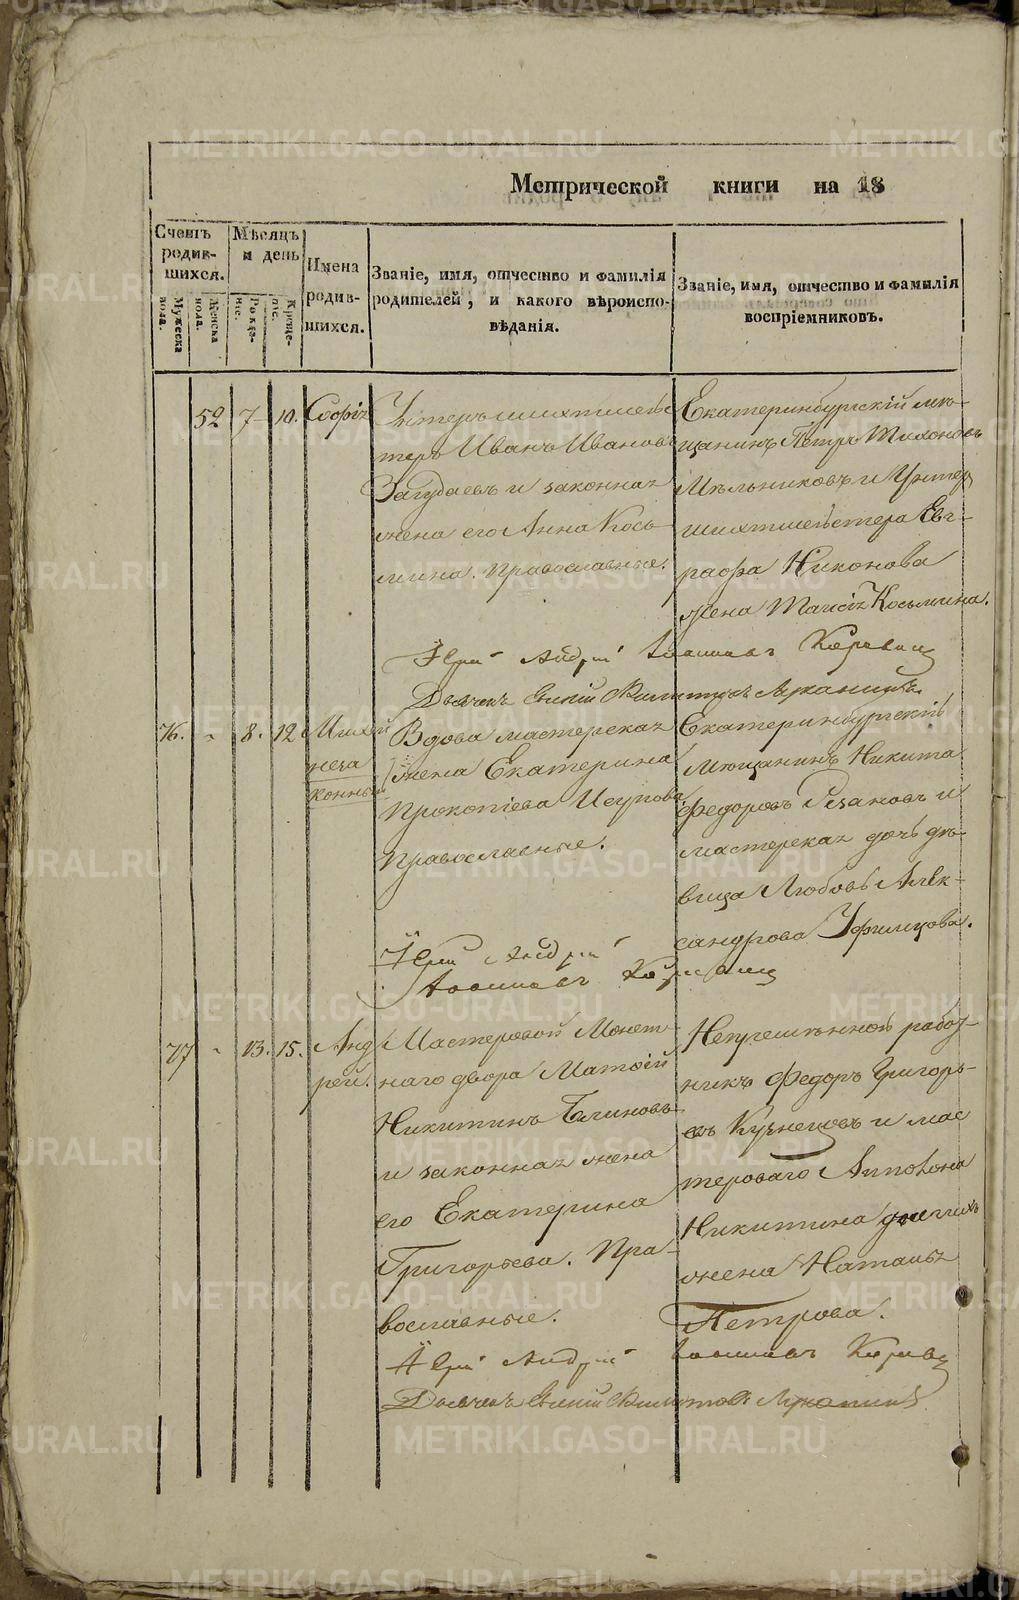 Метрической книги на 18
Счетъ родив-шихся.
Мужеска пола.
Женска пола.
Мѣсяцъ и день
Рожде-нія.
Креще-нія.
Имена родив-шихся.
Званіе, имя, отчество и фамилія
родителей, и какого вѣроиспо-
вѣданія.
Званіе, имя, отчество и фамилія
воспріемниковъ.
52 7 10. Софія
Унтеръ шихтмейс
теръ Иванъ Ивановъ
Загудаевъ и законная
жена его Анна Кось
мина. Православные.
Екатеринбургскій мѣ-
щанинъ Петръ Тихоновъ
Мѣльниковъ и Унтер
шихтмейстера Евг-
рафа Никонова
жена Таисія Косьмина.
Іерей Андрей
76. - 8. 12 Михей
неза
конный
Вдова мастерская
жена Екатерина
Прокопіева Исупова
Православные.
Екатеринбургскій
Мѣщанинъ Никита
Федоровъ Рязановъ и
мастерская дочь дѣ-
вица Любовь Алек-
сандрова Уфимцова.
Іерей Андрей
77 - 13. 15. Анд
рей.
Мастеровой Монет-
наго двора Матѳій
Никитинъ Блиновъ
и законная жена
его Екатерина
Григорьева. Пра-
вославные.
Непремѣнной работ-
никъ Федоръ Григорь-
евъ Кузнецовъ и мас
тероваго Аполона
Никитина
жена Наталья
Петрова.
Іерей Андрей
METRIKI.GASO-URAL.RU